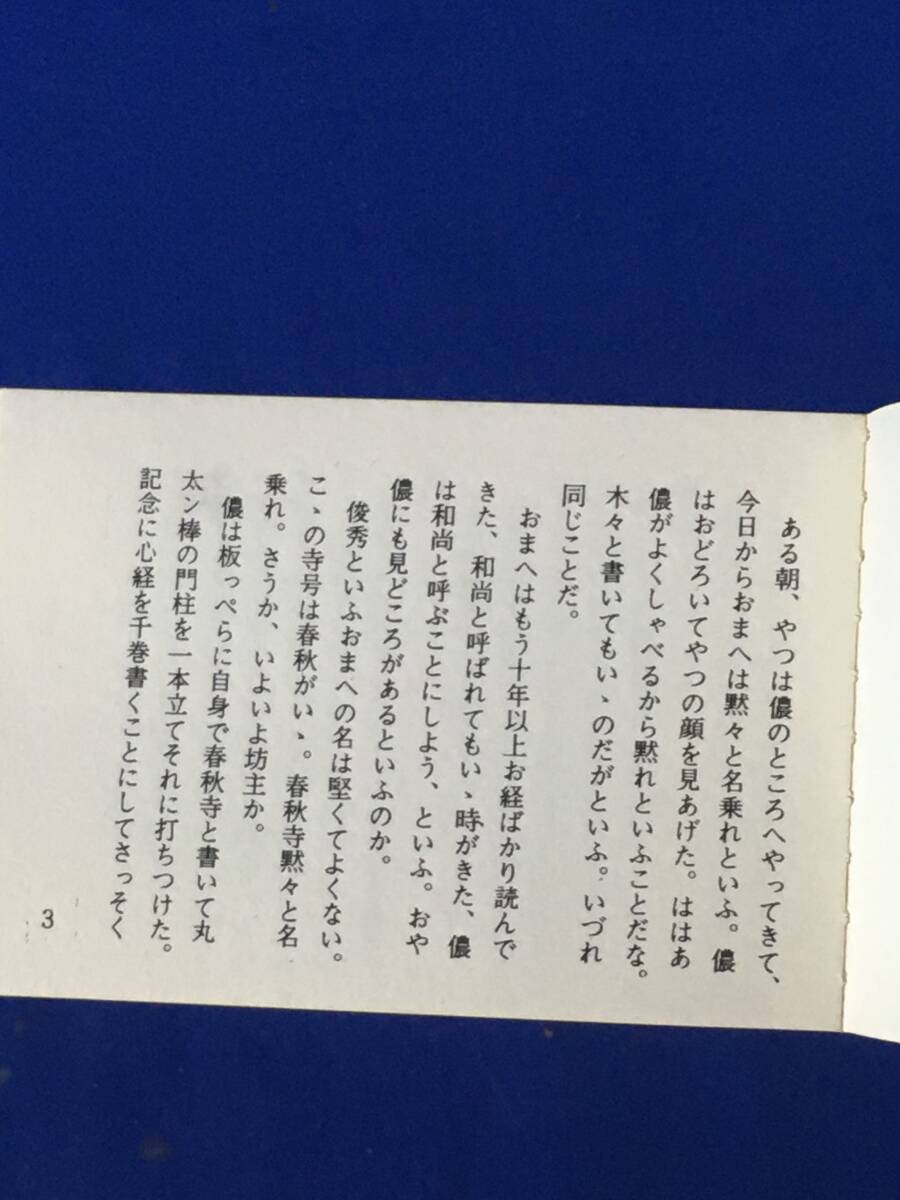 ある朝、やつは儂のところへやってきて、
今日からおまへは黙々と名乗れといふ。儂
はおどろいてやつの顔を見あげた。ははあ
儂がよくしゃべるから黙れといふことだな。
木々と書いてもいゝのだがといふ。いづれ
同じことだ。
おまへはもう十年以上お経ばかり読んで
きた、和尚と呼ばれてもいゝ時がきた、儂
は和尚と呼ぶことにしよう、といふ。おや
儂にも見どころがあるといふのか。
俊秀といふおまへの名は堅くてよくない。
こゝの寺号は春秋がいゝ。春秋寺黙々と名
乗れ。さうか、いよいよ坊主か。
儂は板っぺらに自身で春秋寺と書いて丸
太ン棒の門柱を一本立てそれに打ちつけた。
記念に心経を千巻書くことにしてさっそく
3